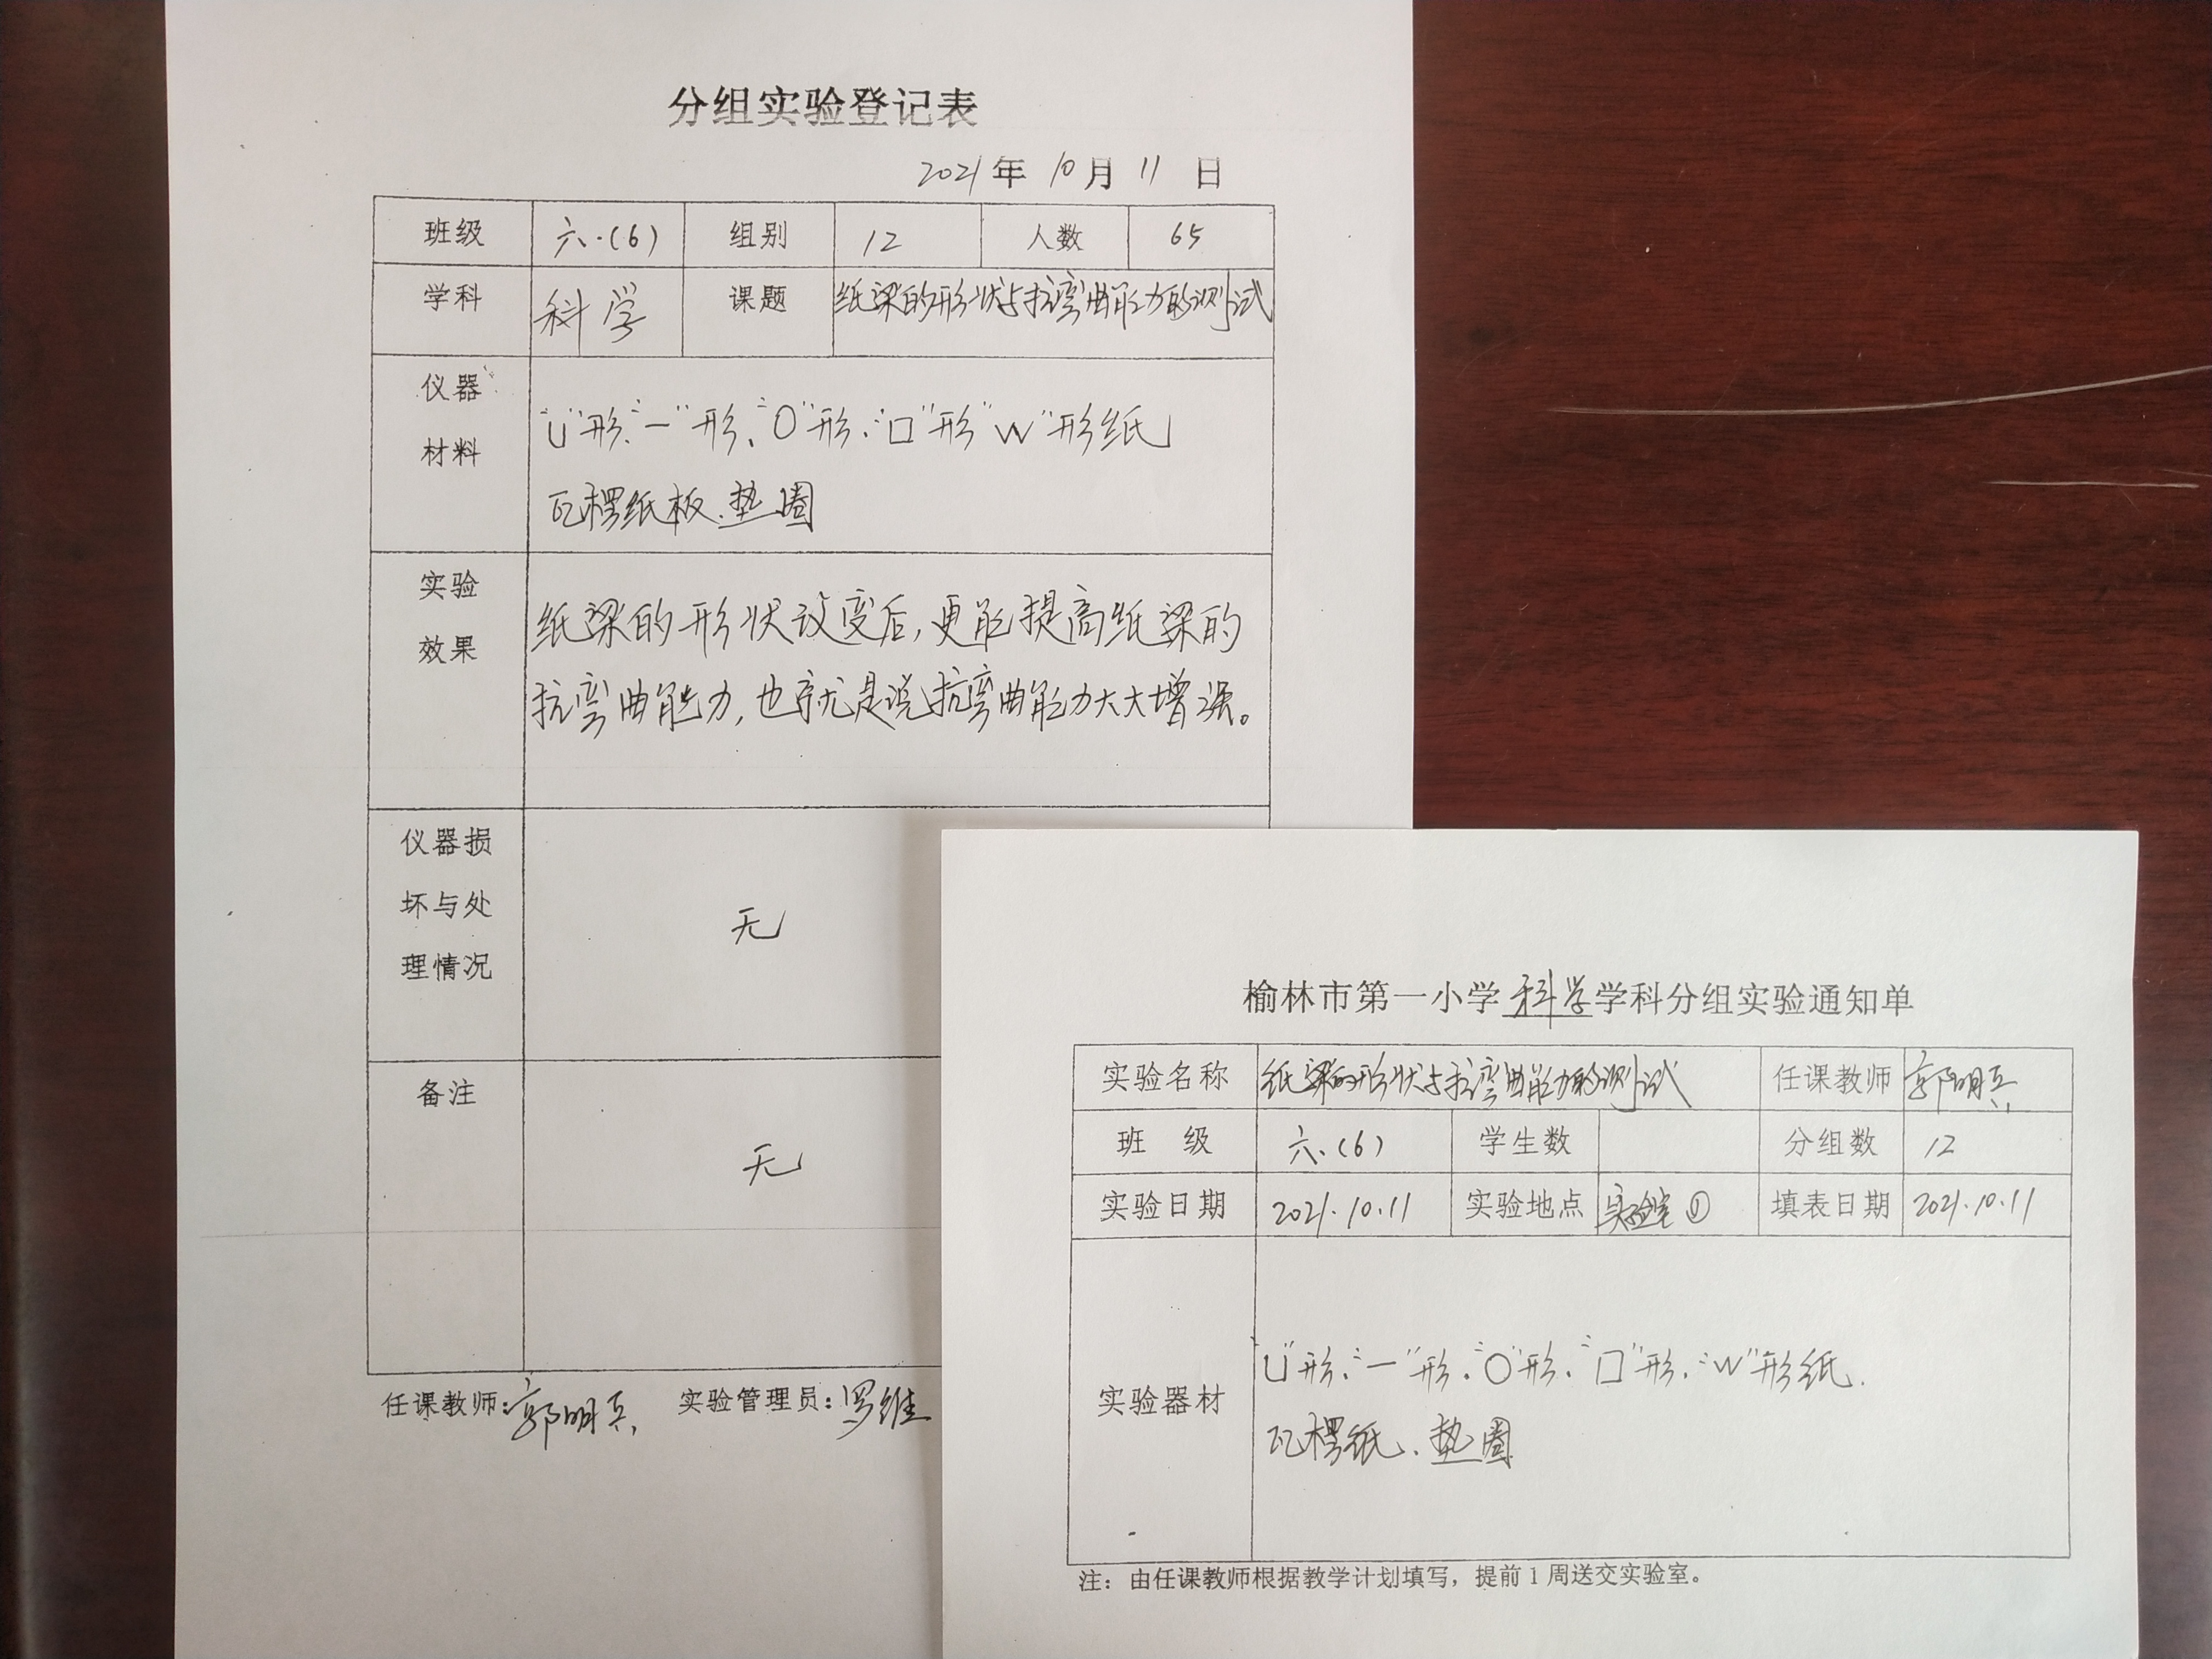 分组实验登记表
2021年 10月 11 日
班级 六.(6) 组别 12 人数 65
学科 科学 课题 纸梁的形状与抗弯曲能力的测试
仪器 材料
"U"形、"一"形、"O"形、"口"形"W"形纸
瓦楞纸板、垫圈
实验 效果
纸梁的形状改变后,更能提高纸梁的
抗弯曲能力,也就是说抗弯曲能力大大增强。
仪器损
坏与处 无
理情况
备注
无
任课教师:郭明兵 实验管理员:罗维
榆林市第一小学科学学科分组实验通知单
实验名称 纸梁的形状与抗弯曲能力的测试 任课教师 郭明兵
班 级 六.(6) 学生数 分组数 12
实验日期 2021.10.11 实验地点 实验室① 填表日期 2021.10.11
"U"形、"一"形、"O"形、"口"形、"W"形纸.
实验器材
瓦楞纸、垫圈
注:由任课教师根据教学计划填写,提前1周送交实验室。